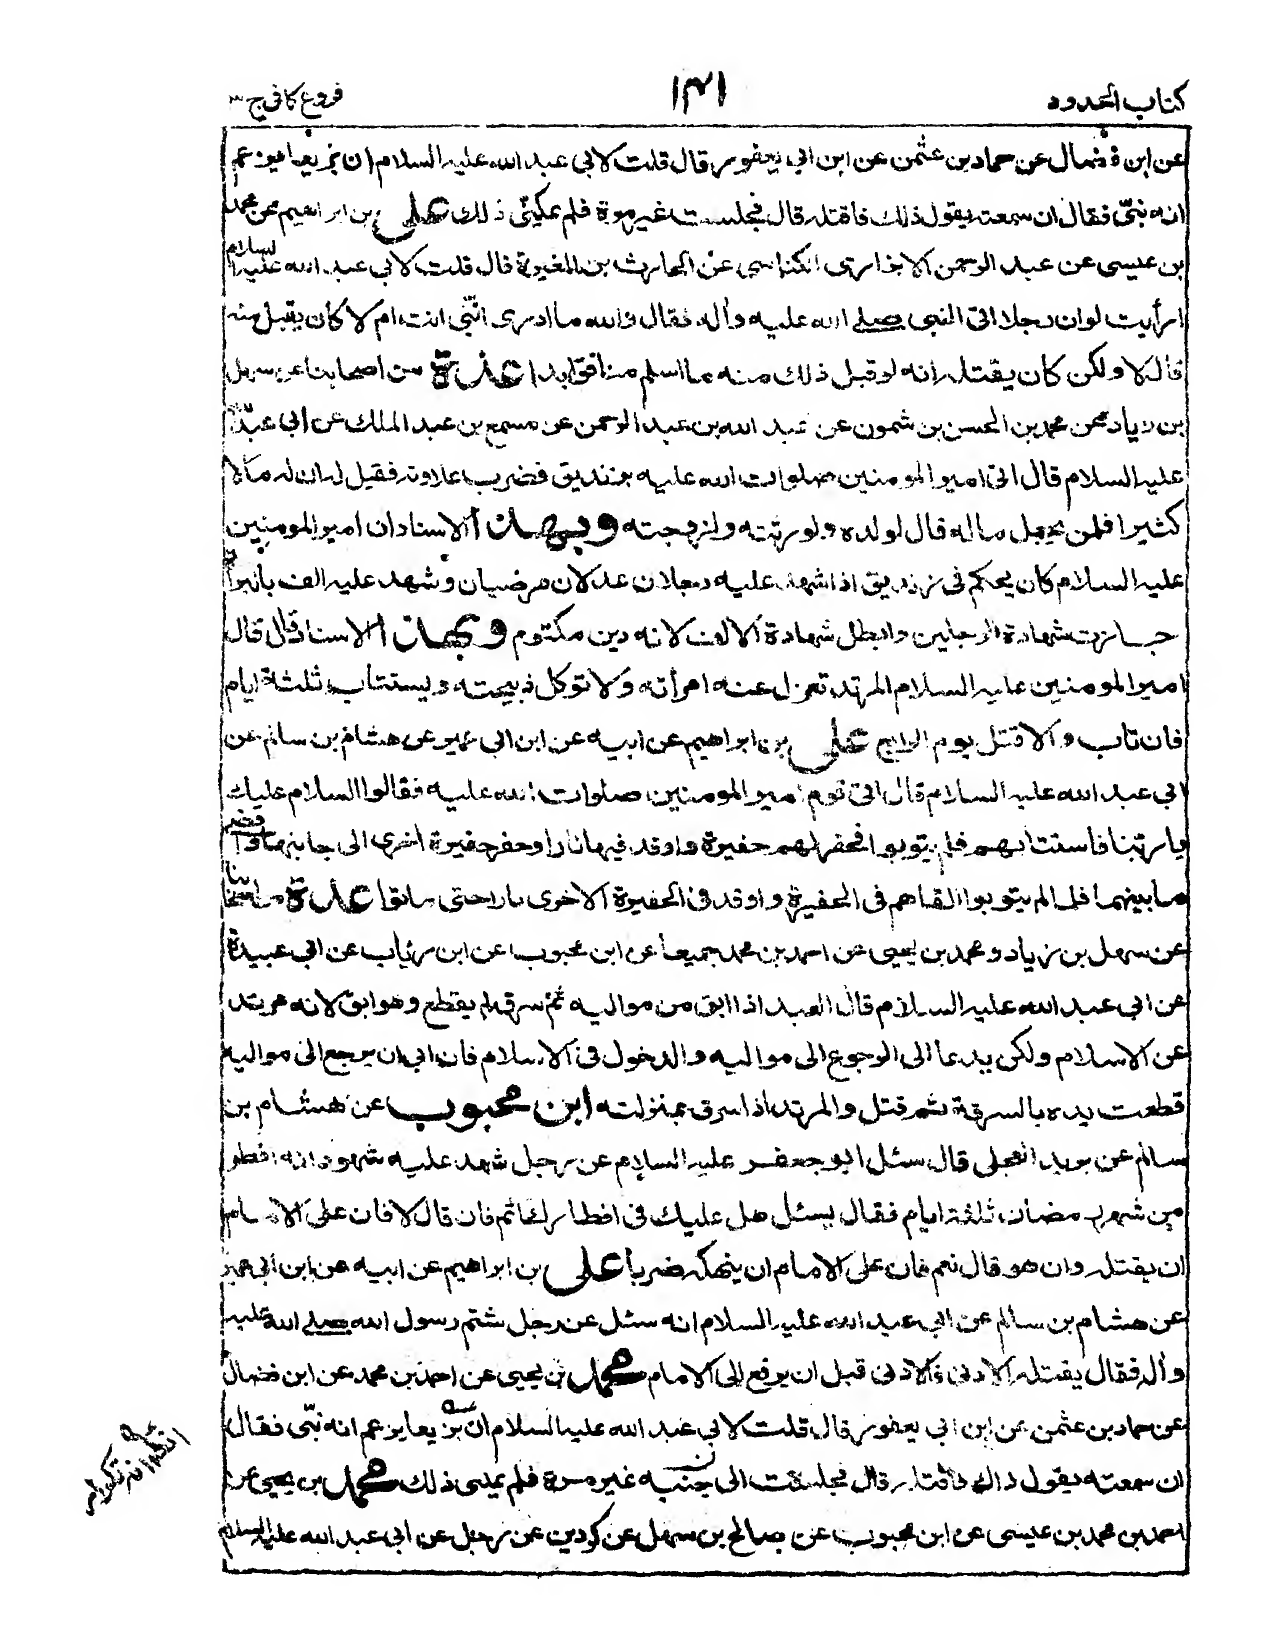 كتاب الحدود
١٤١
فروع كافي ج ٣
عن ابن فضال عن حماد بن عثمن عن ابن ابي يعفور قال قلت لابي عبد الله عليه السلام ان بزيعا يزعم
انه نبيّ فقال ان سمعته يقول ذلك فاقتله قال فجلست غير مرة فلم يمكنّي ذلك علي بن ابراهيم عن محمد
بن عيسى عن عبد الرحمن الابزاري الكناسي عن الحارث بن المغيرة قال قلت لابي عبد الله عليه السلام
ارأيت لو ان رجلا اتى النبي صلى الله عليه وأله فقال والله ما ادري انبّي انت ام لا كان يقبل منه
قال لا ولكن كان يقتله انه لو قبل ذلك منه ما اسلم منافق ابدا عدة من اصحابنا عن سهل
بن زياد عن محمد بن الحسن بن شمون عن عبد الله بن عبد الرحمن عن مسمع بن عبد الملك عن ابي عبد الله
عليه السلام قال اتى امير المومنين صلوات الله عليه بزنديق فضرب علاوته فقيل له ان له مالا
كثيرا فلمن يجعل ماله قال لولده ولورثته ولزوجته وبهذا الاسناد ان امير المومنين
عليه السلام كان يحكم في زنديق اذا شهد عليه رجلان عدلان مرضيان وشهد عليه الف بالبراة
جازت شهادة الرجلين وابطل شهادة الالف لانه دين مكتوم وبهذا الاسناد قال قال
امير المومنين عليه السلام المرتد تعزل عنه امرأته ولا توكل ذبيحته ويستتاب ثلثة ايام
فان تاب والا قتل يوم الرابع علي بن ابراهيم عن ابيه عن ابن ابي عمير عن هشام بن سالم عن
ابي عبد الله عليه السلام قال اتى قوم امير المومنين صلوات الله عليه فقالوا السلام عليك
يا ربنا فاستتابهم فلم يتوبوا فحفر لهم حفيرة واوقد فيها نارا وحفر حفيرة اخرى الى جانبها وافضى
ما بينهما فلما لم يتوبوا القاهم في الحفيرة واوقد في الحفيرة الاخرى نارا حتى ماتوا عدة من اصحابنا
عن سهل بن زياد و محمد بن يحيى عن احمد بن محمد جميعا عن ابن محبوب عن ابن رئاب عن ابي عبيدة
عن ابي عبد الله عليه السلام قال العبد اذا ابق من مواليه ثم سرق لم يقطع وهو ابق لانه مرتد
عن الاسلام ولكن يدعا الى الرجوع الى مواليه والدخول في الاسلام فان ابى ان يرجع الى مواليه
قطعت يده بالسرقة ثم قتل والمرتد اذا سرق بمنزلته ابن محبوب عن هشام بن
سالم عن بريد العجلي قال سئل ابو جعفر عليه السلام عن رجل شهد عليه شهود انه افطر
من شهر رمضان ثلثة ايام فقال يسئل هل عليك في افطارك اثم فان قال لا فان على الامام
ان يقتله وان هو قال نعم فان على الامام ان ينهكه ضربا علي بن ابراهيم عن ابيه عن ابن ابي عمير
عن هشام بن سالم عن ابي عبد الله عليه السلام انه سئل عن رجل شتم رسول الله صلى الله عليه
وأله فقال يقتله الادنى فالادنى قبل ان يرفع الى الامام محمد بن يحيى عن احمد بن محمد عن ابن فضال
عن حماد بن عثمن عن ابن ابي يعفور قال قلت لابي عبد الله عليه السلام ان بزيعا يزعم انه نبّي فقال
ان سمعته يقول ذلك فاقتله قال فجلست الى جنبه غير مرة فلم يمكني ذلك محمد بن يحيى عن
احمد بن محمد بن عيسى عن ابن محبوب عن صالح بن سهل عن كردين عن رجل عن ابي عبد الله عليه السلام